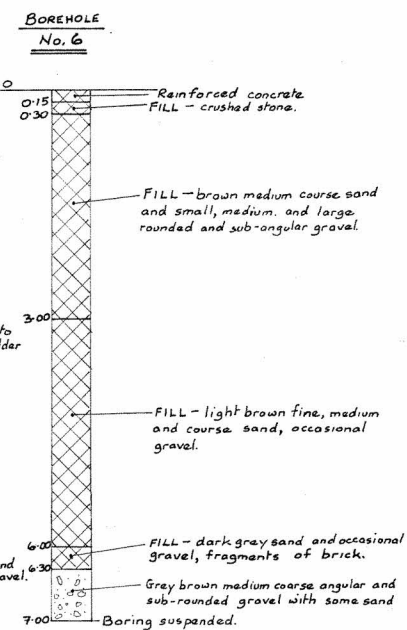 BOREHOLE
No. 6
0
Reinforced concrete
0·15
FILL - crushed stone.
0·30
FILL - brown medium course sand
and small, medium. and large
rounded and sub-angular gravel.
3·00
to
FILL - light brown fine, medium
and course sand, occasional
gravel.
6·00
FILL - dark grey sand and occasional
gravel, fragments of brick.
6·30
Grey brown medium coarse angular and
sub-rounded gravel with some sand
7·00
Boring suspended.